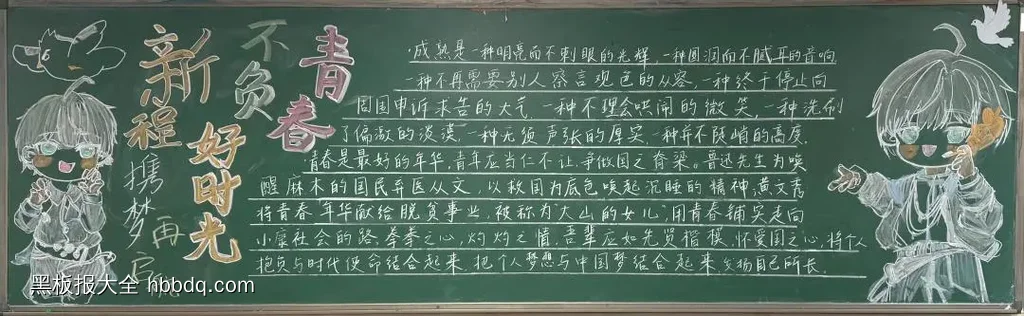 新程
携梦再启航
好时光
不负
青春
成熟是一种明亮而不刺眼的光辉,一种圆润而不腻耳的音响
一种不再需要别人察言观色的从容,一种终于停止向
周围申诉求告的大气,一种不理会哄闹的微笑,一种洗刷
了偏激的淡漠,一种无须声张的厚实,一种并不陡峭的高度.
青春是最好的年华,青年应当仁不让,争做国之脊梁。鲁迅先生为唤
醒麻木的国民弃医从文,以救国为底色唤起沉睡的精神,黄文秀
将青春年华献给脱贫事业,被称为"大山的女儿",用青春铺实走向
小康社会的路,拳拳之心,灼灼之情.吾辈应如先贤楷模,怀爱国之心,将个人
抱负与时代使命结合起来,把个人梦想与中国梦结合起来,发扬自己所长.
黑板报大全 hbbdq.com